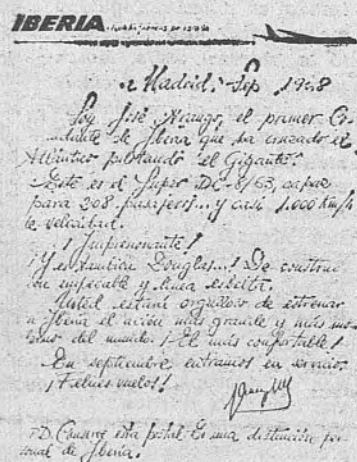 IBERIA
Madrid, Sep. 1968
Soy José Arango, el primer Co-
mandante de Iberia que ha cruzado el
Atlántico pilotando "el Gigante".
Este es el Super DC-8/63, capaz
para 208 pasajeros... y casi 1.000 Km/h
de velocidad.
¡Impresionante!
¡Y es también Douglas...! De construc
ión impecable y línea esbelta.
Usted estará orgulloso de estrenar
a Iberia el avión más grande y más mo-
derno del mundo. ¡El más confortable!
En septiembre, entramos en servicio.
¡Felices vuelos!
P.D. Conserve esta postal. Es una distinción per
sonal de Iberia.